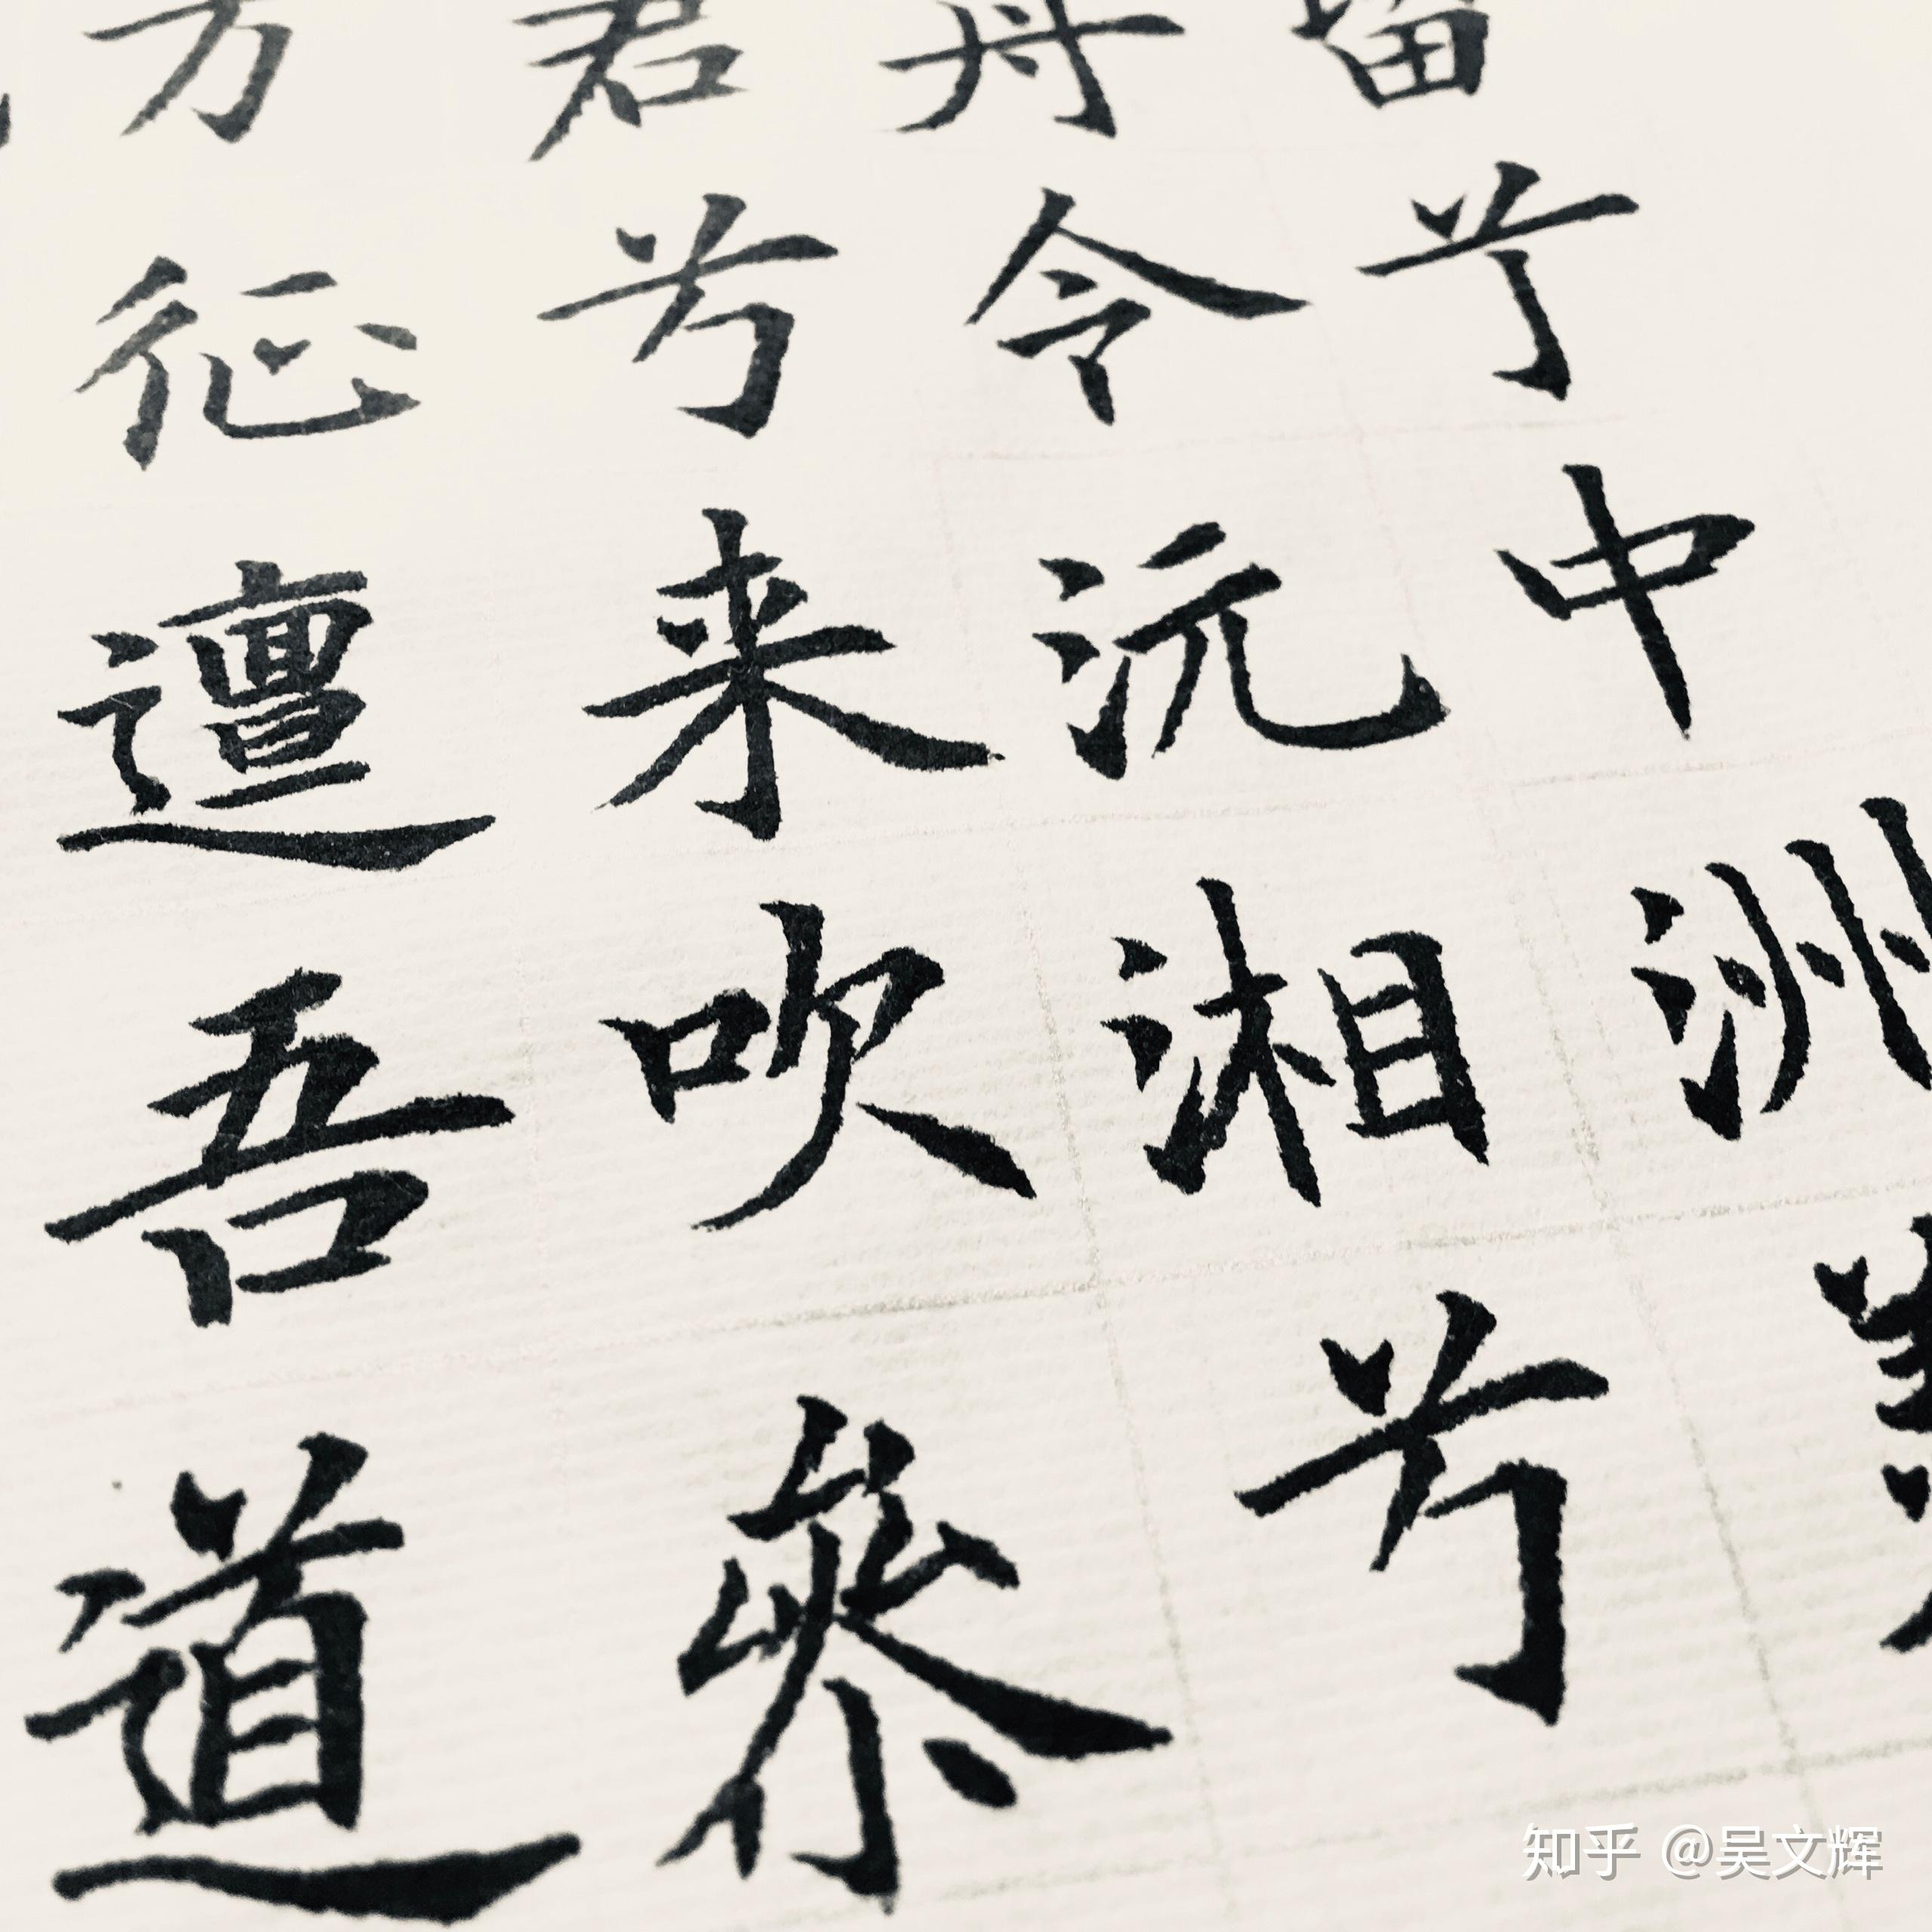 留兮中洲
舟令沅湘兮
君兮来吹參
方征邅吾道
知乎 @吴文辉